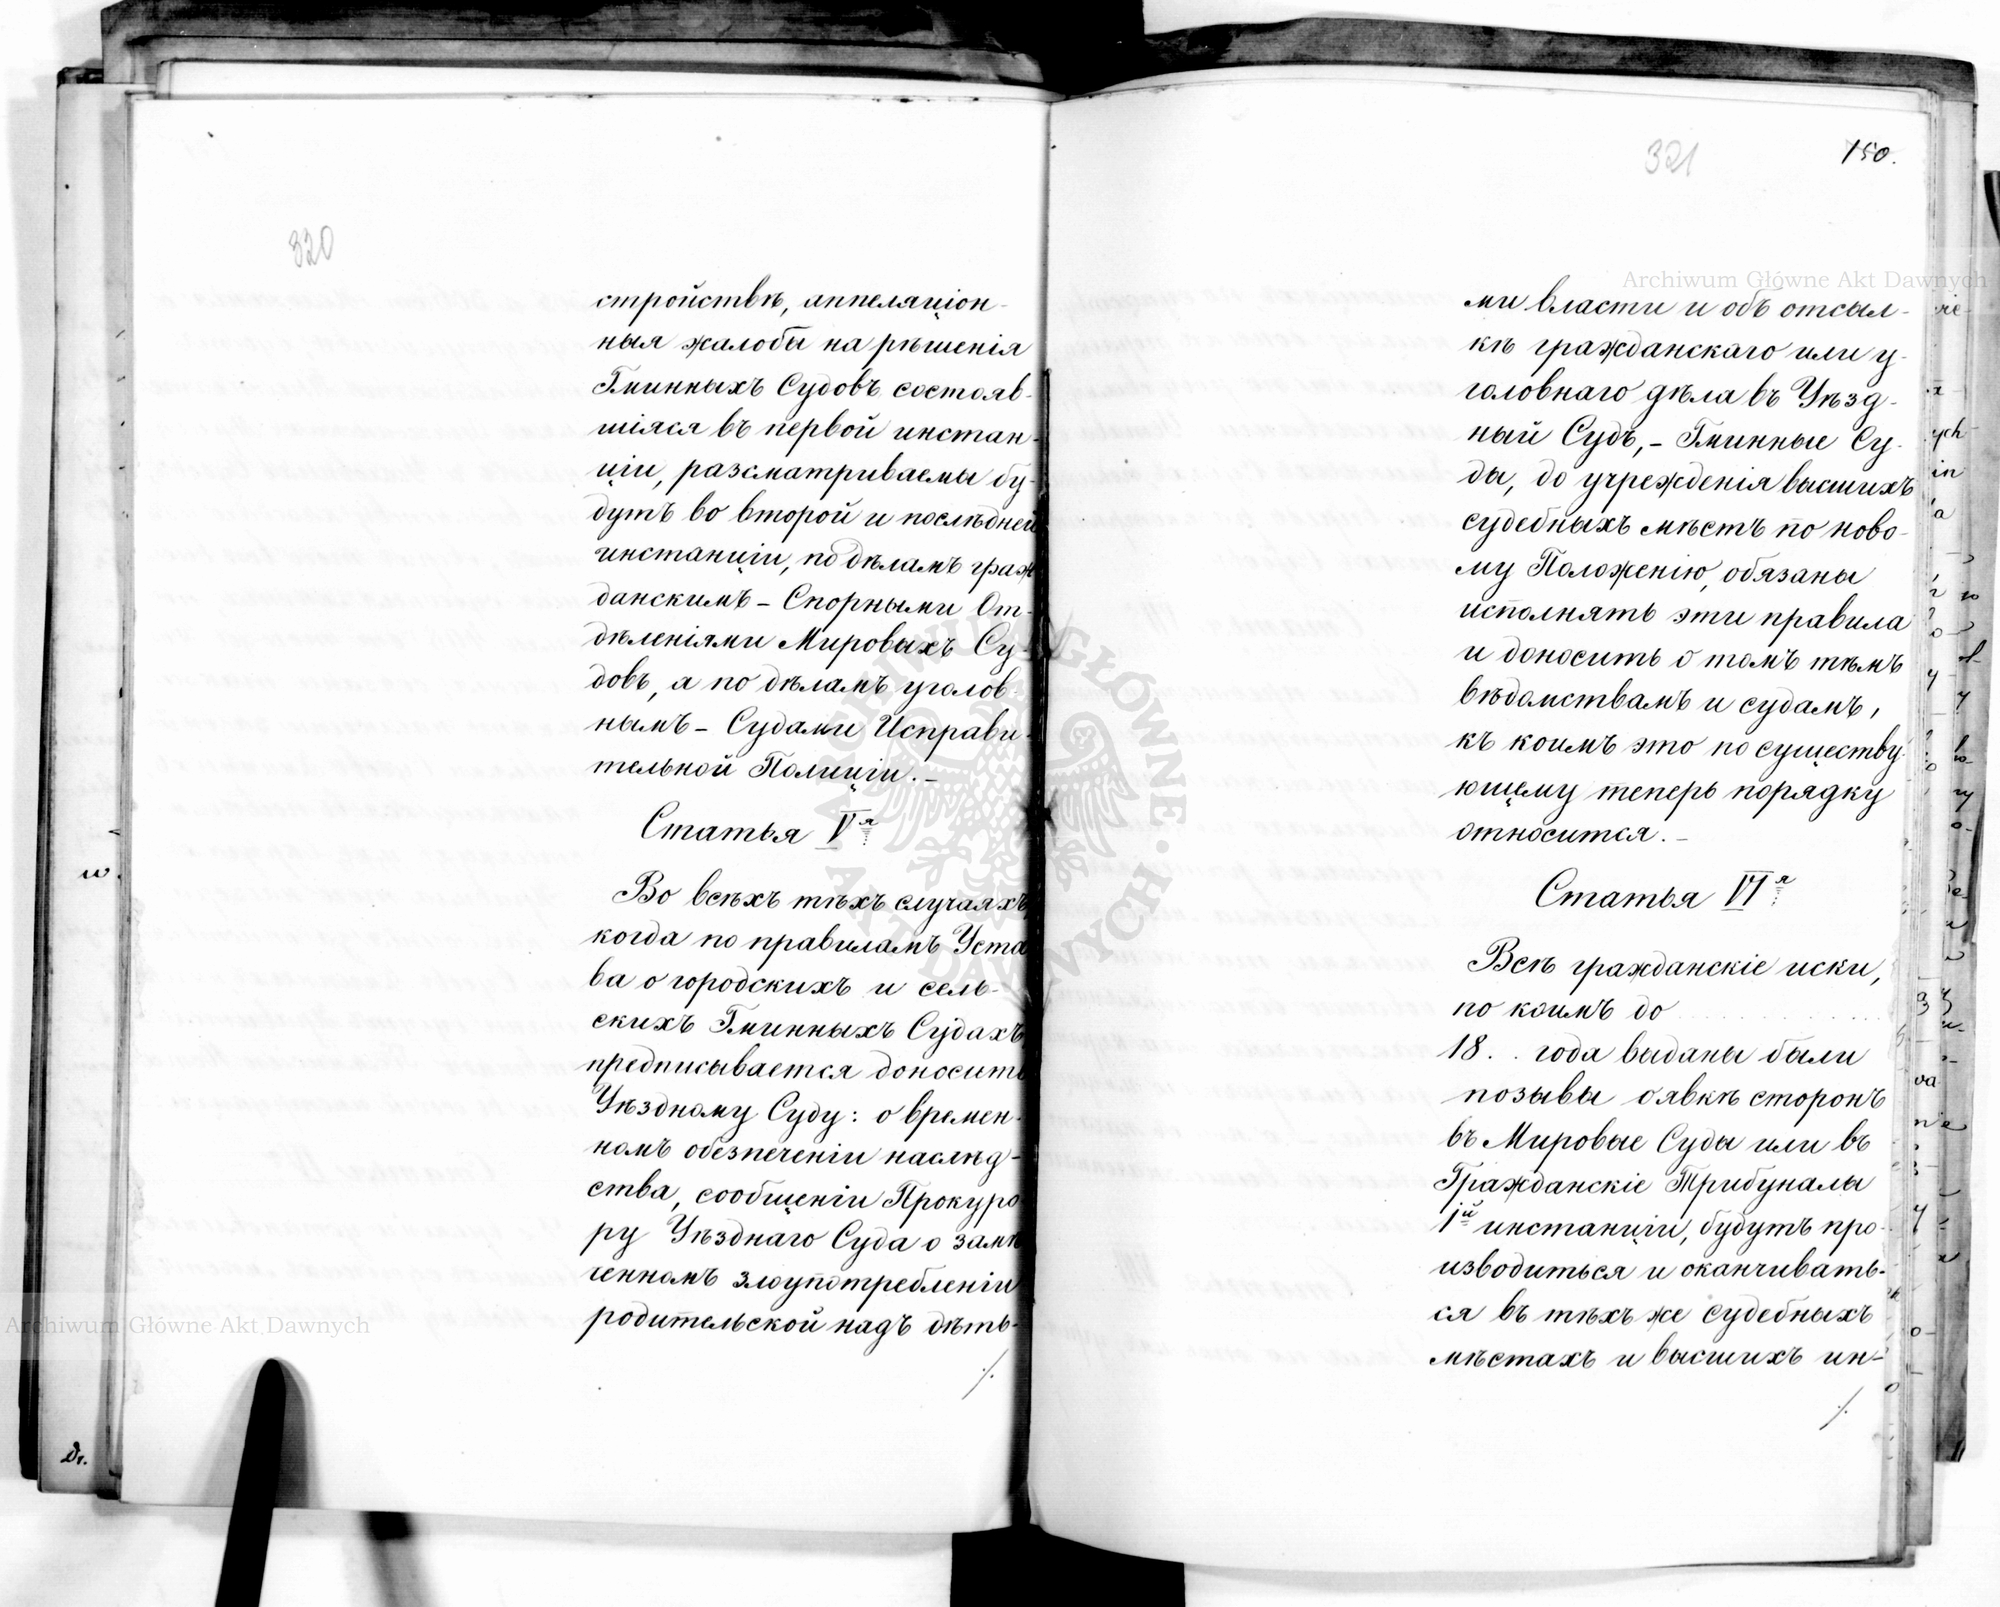 320
стройствѣ, аппеляціон-
ныя жалобы на рѣшенія
Гминныхъ Судовъ состояв-
шіяся въ первой инстан-
ціи, разсматриваемы бу-
дутъ во второй и послѣдней
инстанціи, по дѣламъ граж
данскимъ – Спорными От-
дѣленіями Мировыхъ Су-
довъ, а по дѣламъ уголов-
нымъ – Судами Исправи-
тельной Полиціи. –
Статья Vя
Во всѣхъ тѣхъ случаяхъ
когда по правиламъ Уста
ва о городскихъ и сель-
скихъ Гминныхъ Судахъ
предписывается доносить
Уѣздному Суду: о времен-
номъ обезпеченіи наслѣд-
ства, сообщеніи Прокуро
ру Уѣзднаго Суда о замѣ
ченномъ злоупотребленіи
родительской надъ дѣть-
./.
321
150.
ми власти и объ отсыл-
кѣ гражданскаго или у-
головнаго дѣла въ Уѣзд-
ный Судъ, – Гминные Су-
ды, до учрежденія высшихъ
судебныхъ мѣстъ по ново-
му Положенію, обязаны
исполнять эти правила
и доносить о томъ тѣмъ
вѣдомствамъ и судамъ,
къ коимъ это по существу
ющему теперь порядку
относится. –
Статья VIя
Всѣ гражданскіе иски,
по коимъ до . . . . . . . . . .
18. . года выданы были
позывы о явкѣ сторонъ
въ Мировые Суды или въ
Гражданскіе Трибуналы
1й инстанціи, будутъ про-
изводиться и оканчивать-
ся въ тѣхъ же судебныхъ
мѣстахъ и высшихъ ин-
./.
Archiwum Główne Akt Dawnych
Archiwum Główne Akt Dawnych
ARCHIWUM GŁÓWNE AKT DAWNYCH